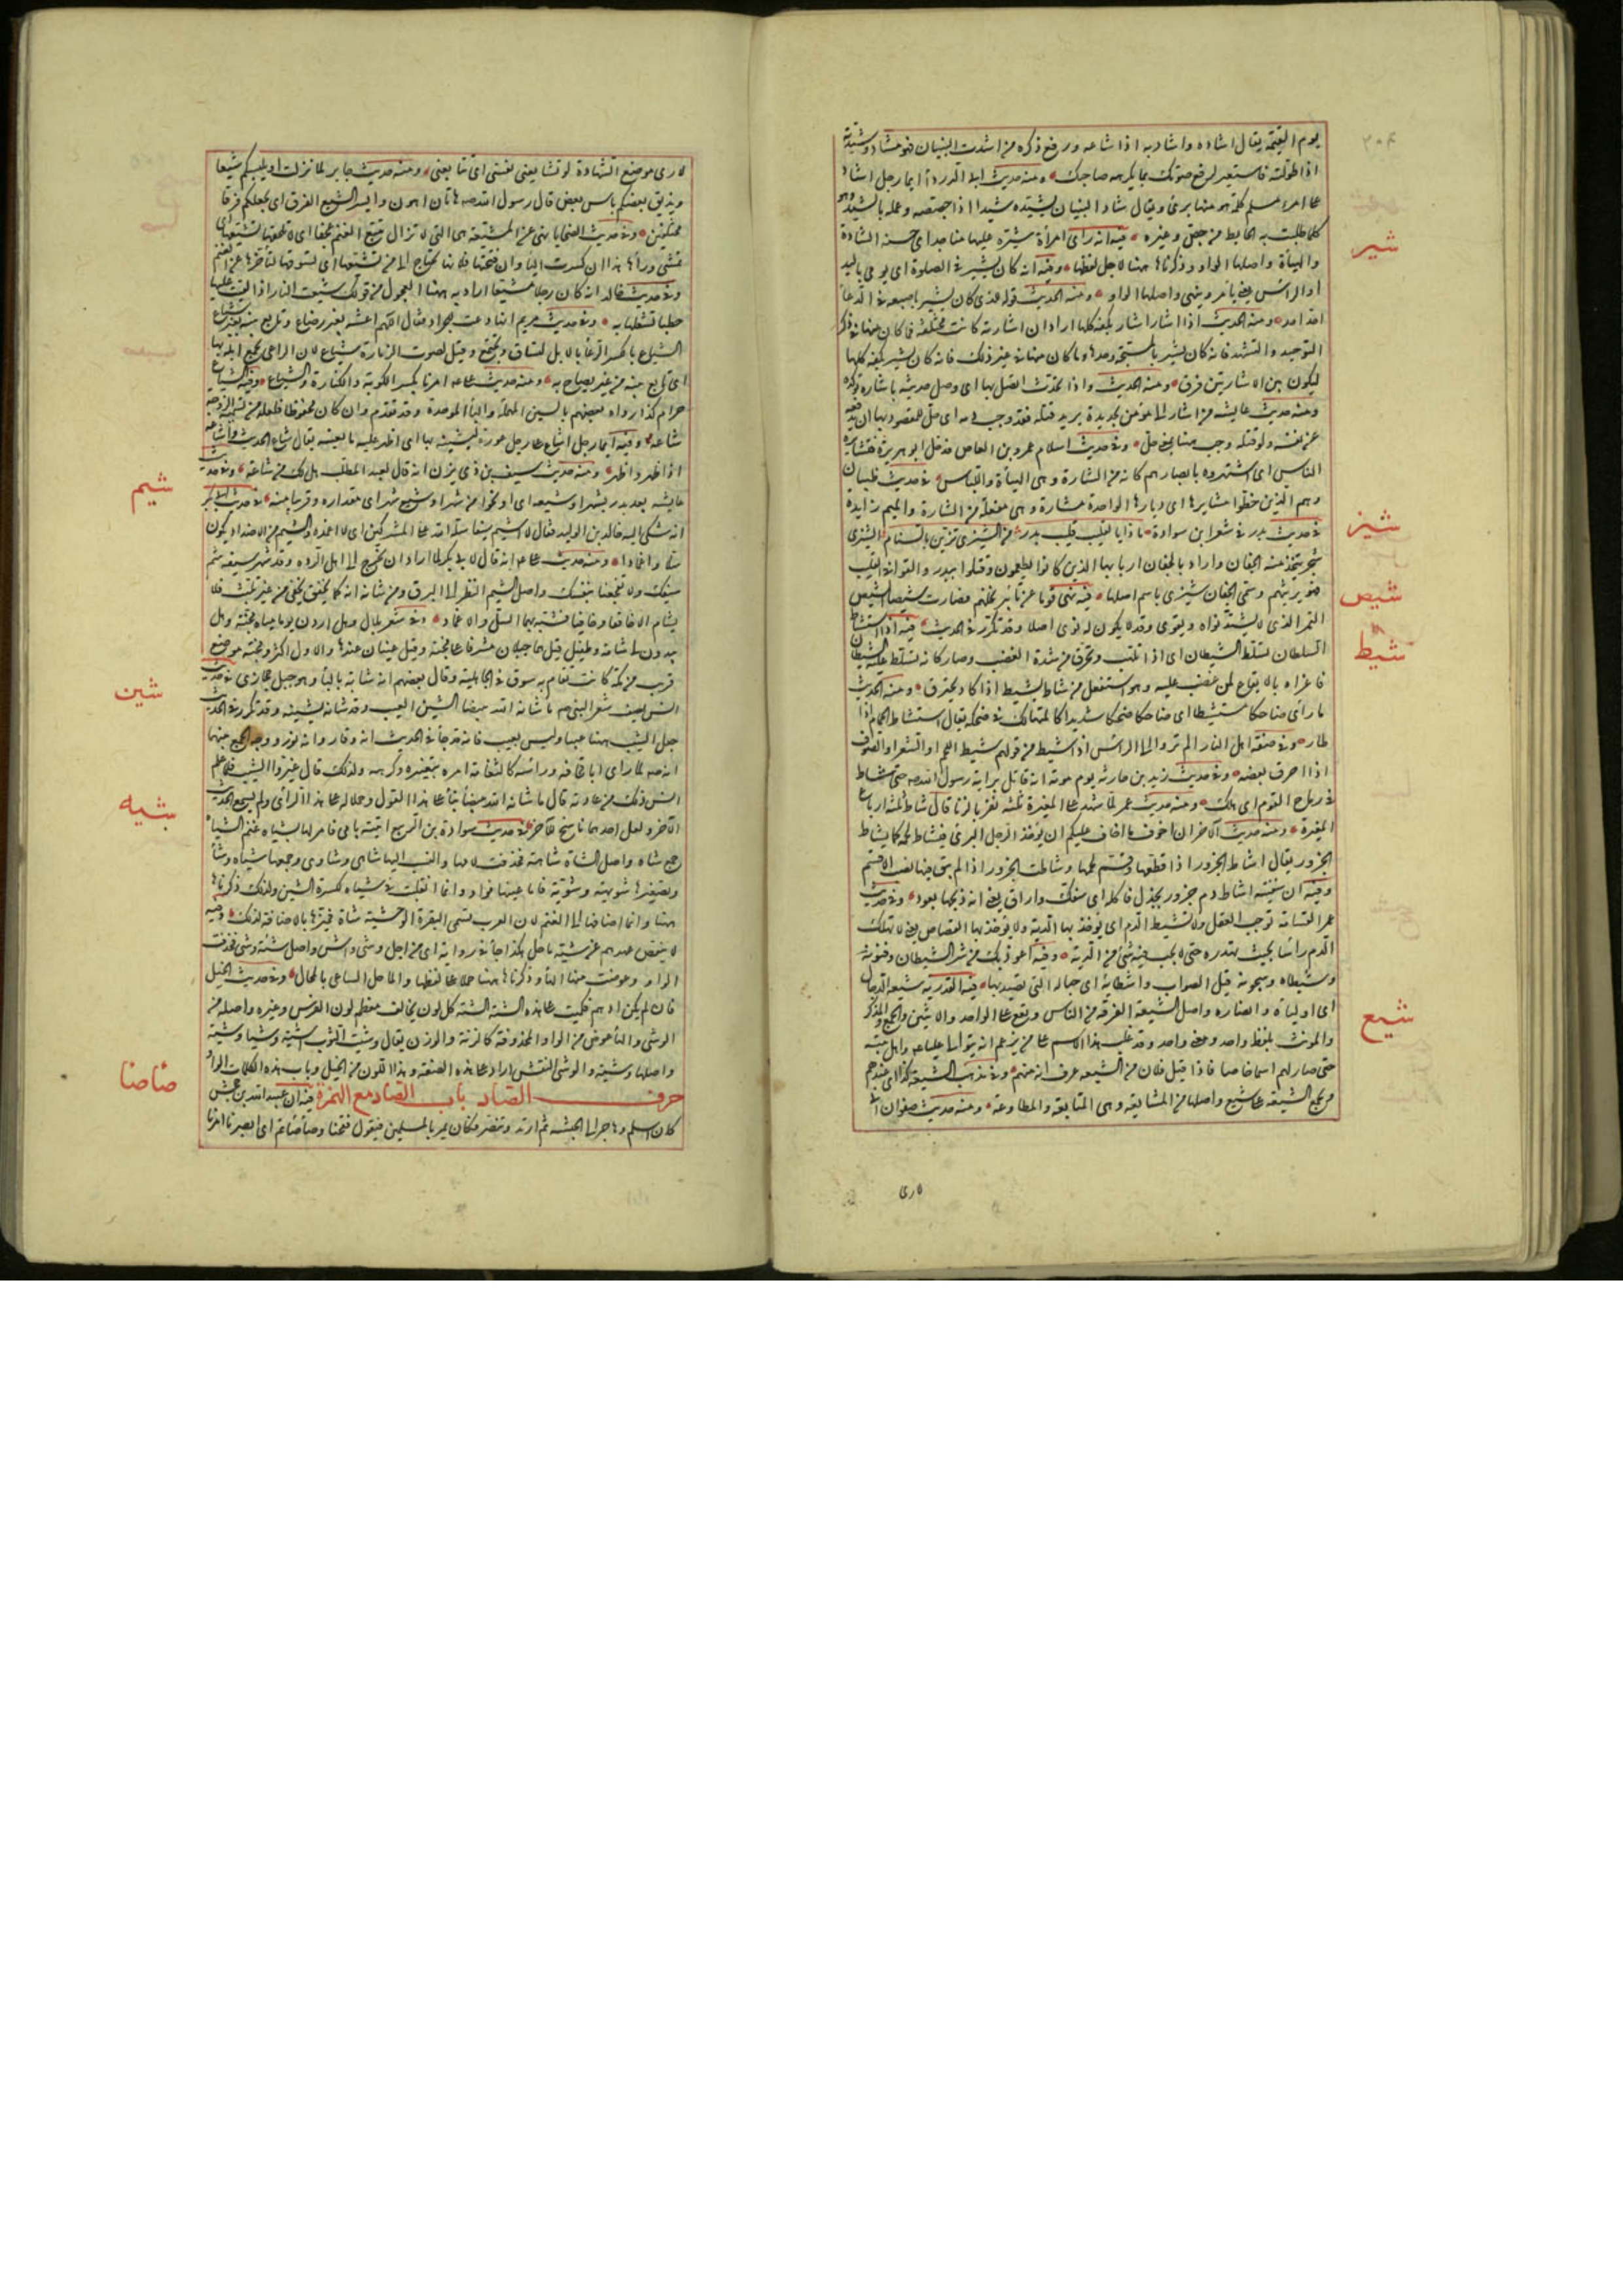 ٣٠٤
يوم القيمة يقال اشاده واشاد به اذا اشاعه ورفع ذكره من اشدت البنيان فهو مشاد وشيدته
اذا طولته فاستعير لرفع صوتك بما يكرهه صاحبك ومنه حديث ابى الدرداء ايما رجل اشاد
على امرء مسلم كلمة هو منها برئ ويقال شاد البنيان يشيده شيدا اذا جصصه وعمله بالشيد وهو
كلما طليت به الحايط من جص وغيره فيه انه راى امرأة شيرة عليها مناجد اى حسنة الشارة
شير
والهيأة واصلها الواو وذكرناها هنا لاجل لفظها وفيه انه كان يشير فى الصلوة اى يومى باليد
او الراس يعنى يأمر وينهى واصلها الواو ومنه الحديث قوله للذى كان يشير باصبعه فى الدعا
احد احد ومنه الحديث اذا اشار اشار بكفه كلها اراد ان اشارته كانت مختلفة فما كان منها فى ذكر
التوحيد والتشهد فانه كان يشير بالمسبحة وحدها وما كان منها فى غير ذلك فانه كان يشير بكفه كلها
ليكون بين الاشارتين فرق ومنه الحديث واذا تحدث اتصل بها اى وصل حديثه باشارة توكده
ومنه حديث عايشه من اشار الى مؤمن بحديدة يريد قتله فقد وجب دمه اى حل للمقصود بها ان يدفعه
عن نفسه ولو قتله وجب هنا بمعنى حل وفى حديث اسلام عمرو بن العاص فدخل ابو هريرة فتشايره
الناس اى اشتهروه بابصارهم كانه من الشارة وهى الهيأة واللباس فى حديث ظبيان
وهم الذين خطوا مشايرها اى ديارها الواحدة مشارة وهى مفعلة من الشارة والميم زايدة
شيز
فى حديث بدر فى شعر ابن سوادة ماذا بالقليب قليب بدر من الشيزى تزين بالسنام الشيزى
شجر يتخذ منه الجفان واراد بالجفان اربابها الذين كانوا يطعمون وقتلوا ببدر والقوا فى القليب
فهو يرثيهم وسمى الجفان شيزى باسم اصلها فيه نهى قوما عن تأبير نخلهم فصارت شيصا الشيص
شيص
التمر الذى لا يشتد نواه ويقوى وقد لا يكون له نوى اصلا وقد تكرر فى الحديث فيه اذا استشاط
شيط
السلطان تسلط الشيطان اى اذا تلهب وتحرق من شدة الغضب وصار كانه تسلط عليه الشيطان
فاغراه بالايقاع لمن غضب عليه وهو استفعل من شاط يشيط اذا كاد يحترق ومنه الحديث
ما رأى ضاحكا مستشيطا اى ضاحكا ضحكا شديدا كالمتهالك فى ضحكه يقال استشاط الحمام اذا
طار وفى صفة اهل النار الم تروا الى الراس اذا شيط من قولهم شيط اللحم او الشعر او الصوف
اذا احرق بعضه وفى حديث زيد بن حارثه يوم موته انه قاتل براية رسول الله صه حتى شاط
فى رماح القوم اى هلك ومنه حديث عمر لما شهد على المغيرة ثلثة نفر بالزنا قال شاط ثلثة ارباع
المغيرة ومنه حديث الآخر ان اخوف ما اخاف عليكم ان يؤخذ الرجل البرئ فيشاط لحمه كما يشاط
الجزور يقال اشاط الجزور اذا قطعها وقسم لحمها وشاطت الجزور اذا لم يبق منها نصيب الا قسم
وفيه ان سفينة اشاط دم جزور بجذل فاكله اى سفك واراق يعنى انه ذبحها بعود وفى حديث
عمر القسامة توجب العقل ولا تشيط الدم اى يؤخذ بها الدية ولا يؤخذ بها القصاص يعنى لا تهلك
الدم راسا بحيث تهدره حتى لا يجب فيه شئ من الدية وفيه اعوذ بك من شر الشيطان وفتونه
وشيطاه وسجونه قيل الصواب واشطانه اى حباله التى تصيد بها فيه القدرية شيعة الدجال
شيع
اى اولياؤه وانصاره واصل الشيعة الفرقة من الناس ويقع على الواحد والاثنين والجمع والمذكر
والمونث بلفظ واحد ومعنى واحد وقد غلب هذا الاسم على من يزعم انه يتولى عليا عم واهل بيته
حتى صار لهم اسما خاصا فاذا قيل فلان من الشيعة عرف انه منهم وفى مذهب الشيعة كذا اى عندهم
ويجمع الشيعة على شيع واصلها من المشايعة وهى المتابعة والمطاوعة ومنه حديث صفوان انى
لارى
لارى موضع الشهادة لو تشايعنى نفسى اى تتابعنى ومنه حديث جابر لما نزلت او يلبسكم شيعا
ويذيق بعضكم باس بعض قال رسول الله صه هاتان اهون وايسر الشيع الفرق اى يجعلكم فرقا
مختلفين وفى حديث الضحايا نهى عن المشيعة هى التى لا تزال تتبع الغنم عجفا اى لا تلحقها تشيعها اى
تمشى وراها هذا ان كسرت اليا وان فتحتها فلانها يحتاج الى من يشيعها اى يسوقها لتأخرها عن الغنم
وفى حديث خالد انه كان رجلا مشيعا اراد به هنا العجول من قولك شيعت النار اذا القيت عليها
حطبا تشعلها به وفى حديث مريم انها دعت للجراد فقال اللهم اعشه بغير رضاع وتابع بينه بغير شياع
الشياع بالكسر الدعا بالابل لتساق وتجتمع وقيل لصوت الزمارة شياع لان الراعى يجمع ابله بها
اى تابع بينه من غير يصاح به ومنه حديث على عم امرنا بكسر الكوبة والكنارة والشياع وفيه الشياع
حرام كذا رواه بعضهم بالسين المهملة والبا الموحدة وقد تقدم وان كان محفوظا فلعله من تسمية الزوجة
شاعه وفيه ايما رجل اشاع على رجل عورة ليشينه بها اى اظهر عليه ما يعيبه يقال شاع الحديث واشاعه
اذا ظهر واظهر ومنه حديث سيف بن ذى يزن انه قال لعبد المطلب هل لك من شاعة وفى حديث
عايشه بعد بدر بشهر او شيعه اى او نحوا من شهر او شيع شهر اى مقداره وقريبا منه فى حديث ابى بكر
شيم
انه شكى اليه خالد بن الوليد فقال لا اشيم سيفا سله الله على المشركين اى لا اغمده والشيم من الاضداد يكون
سلا واغمادا ومنه حديث على عم انه قال لابى بكر لما اراد ان يخرج الى اهل الردة وقد شهر سيفه شم
سيفك ولا تفجعنا بنفسك واصل الشيم النظر الى البرق ومن شانه انه كما يخفق يخفى من غير تلبث فلا
يشام الا خافقا وخافيا فشبه بهما السل والاغماد وفى شعر بلال وهل اردن يوما مياه مجنة وهل
يبدون لى شامة وطفيل قيل هما جبلان مشرفان على مجنة وقيل عينان عندها والاول اكثر ومجنة موضع
قريب من مكة كانت تقام به سوق فى الجاهلية وقال بعضهم انه شابة بالبا وهو جبل حجازى فى حديث
شين
انس يصف شعر النبى صم ما شانه الله ببيضا الشين العيب وقد شانه يشينه وقد تكرر فى الحديث
جعل الشيب ههنا عيبا وليس بعيب فانه قد جا فى الحديث انه وقار وانه نور ووجه الجمع بينهما
انه صه لما راى ابا قحافه وراسه كالثغامة امره بتغييره وكرهه ولذلك قال غيروا الشيب فلما علم
انس ذلك من عادته قال ما شانه الله ببيضا بنا على هذا القول وحملا له على هذا الراى ولم يسمع الحديث
الآخر ولعل احدهما ناسخ للآخر فى حديث سوادة بن الربيع اتيته بامى فامر لها بشياه غنم الشياه
شيه
جمع شاه واصل الشاة شاهة فحذفت لامها والنسب اليها شاهى وشاوى وجمعها شياه وشاء
وتصغيرها شويهة وشوية فاما عينها فواو وانما انقلبت فى شياه لكسرة الشين ولذلك ذكرناها
ههنا وانما اضافها الى الغنم لان العرب تسمى البقرة الوحشية شاة فميزها بالاضافة لذلك وفيه
لا ينقض عهدهم عن شية ماحل هكذا جا فى رواية اى من اجل وشى واش واصل شية وشى فحذفت
الواو وعوضت منها الها وذكرناها ههنا حملا على لفظها والماحل الساعى بالمحال وفى حديث الخيل
فان لم يكن ادهم فكميت على هذه الشية الشية كل لون يخالف معظم لون الفرس وغيره واصله من
الوشى والها عوض من الواو المحذوفة كالزنة والوزن يقال وشيت الثوب اشيه وشيا وشية
واصلها وشية والوشى النقش اراد على هذه الصفة وهذا اللون من الخيل وباب هذه الكلمات الواو
حرف الصاد باب الصاد مع الهمزة فيه ان عبد الله بن جحش
صأصأ
كان اسلم وهاجر الى الحبشه ثم ارتد وتنصر فكان يمر بالمسلمين فيقول فقحنا وصأصأتم اى ابصرنا امرنا